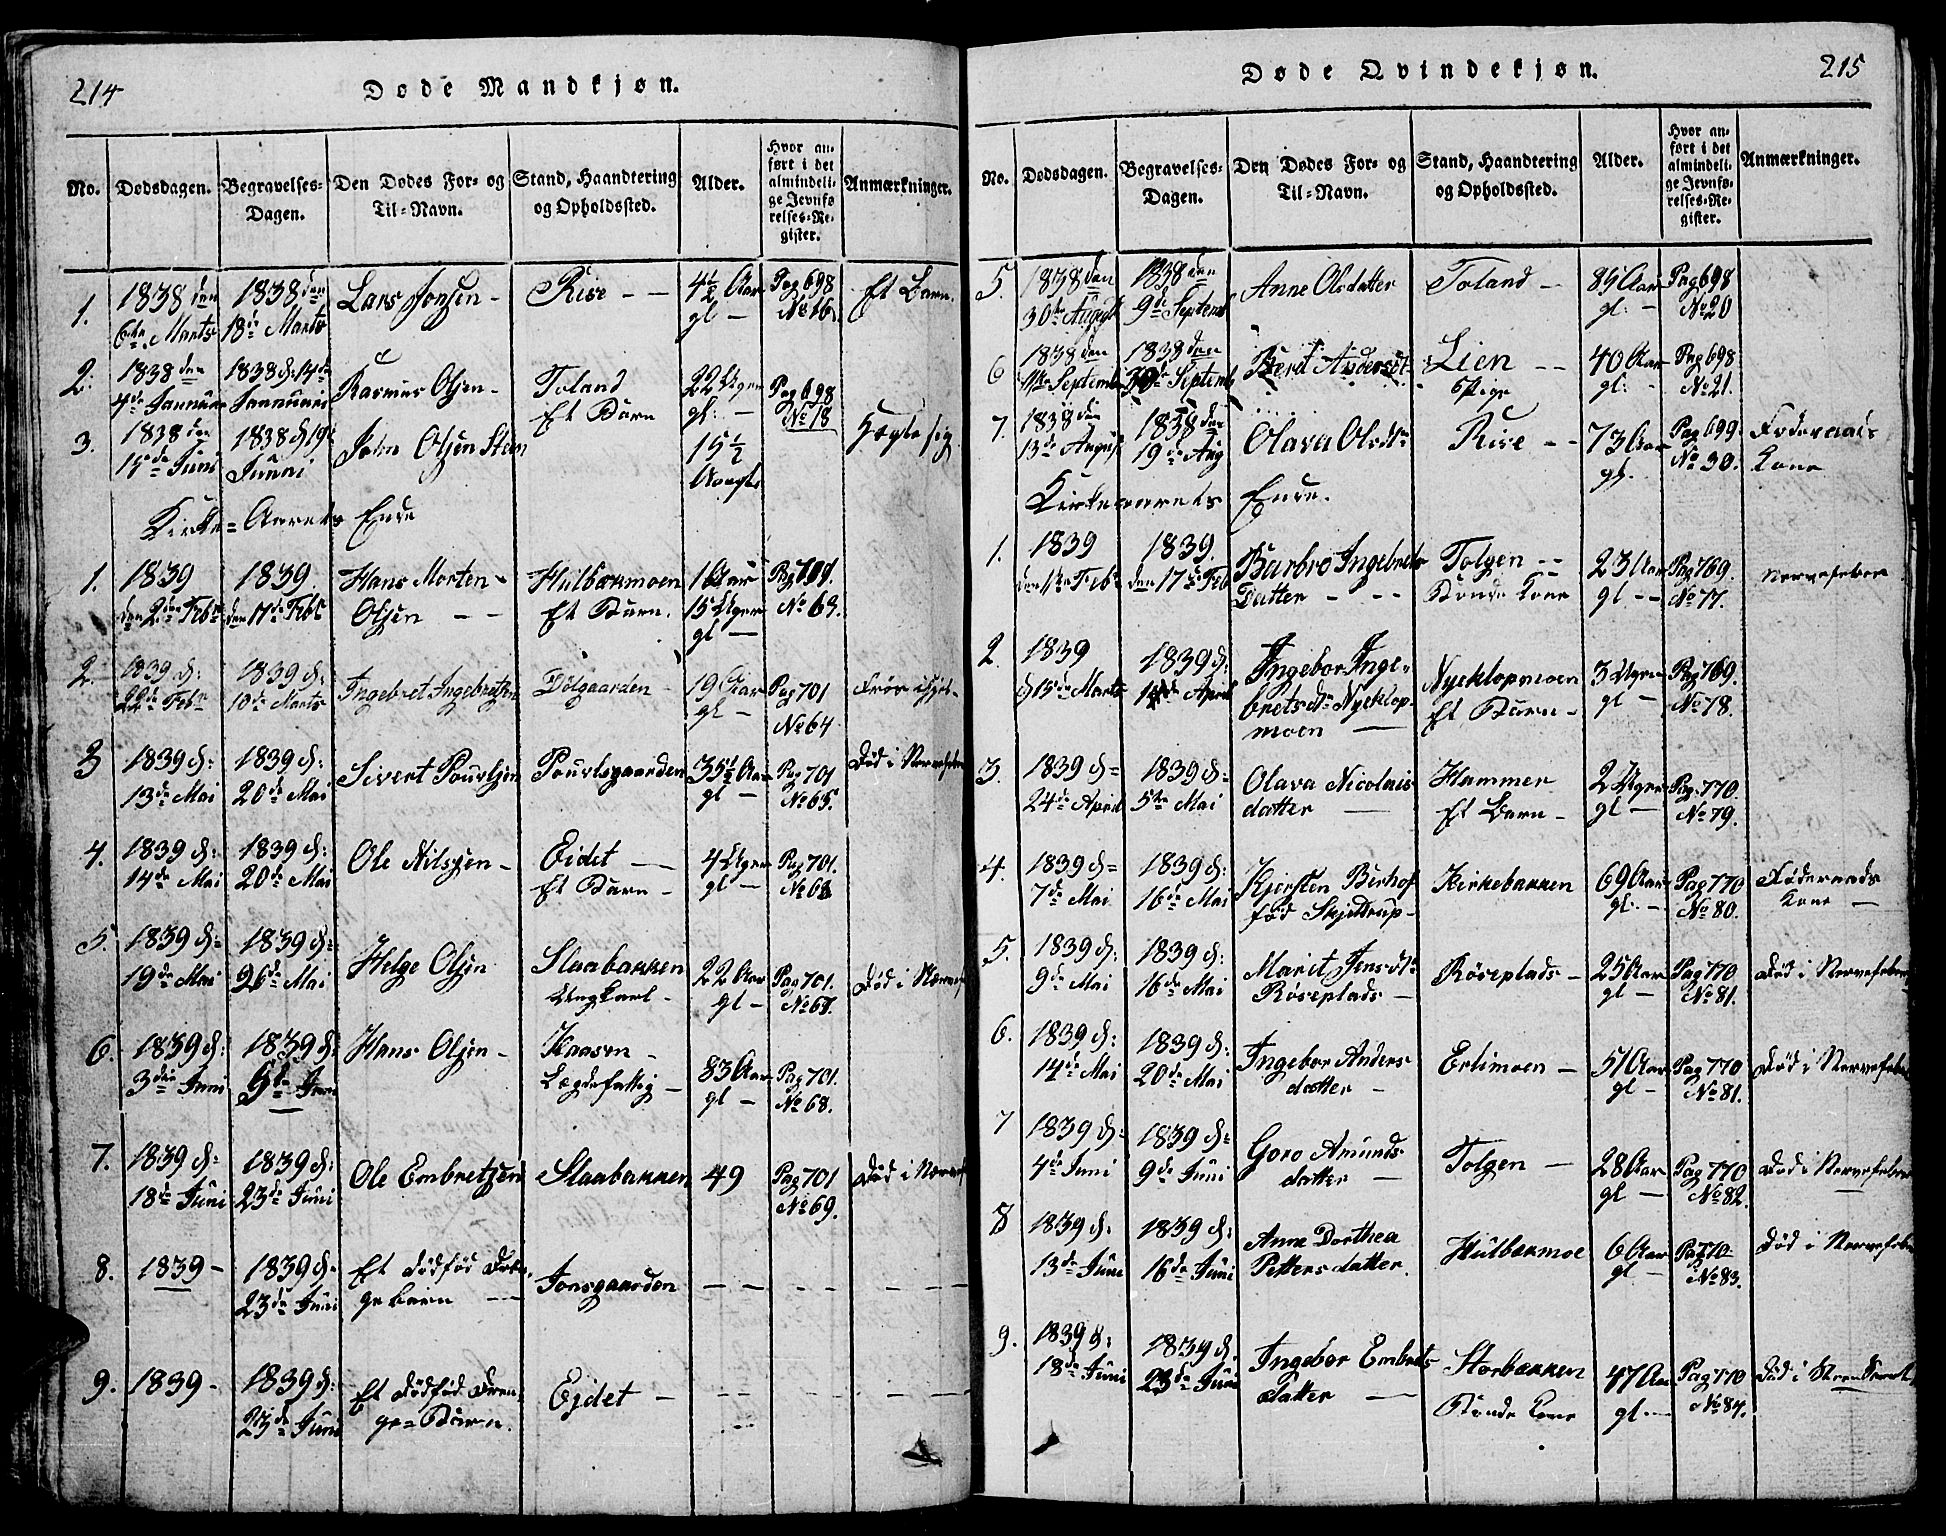 214
Døde Mandkjøn.
No. Dødsdagen. Begravelses-Dagen. Den Dødes For- og Til-Navn. Stand, Haandtering og Opholdssted. Alder. Hvor anført i det almindelige Jevnførelses-Register. Anmærkninger.
1. 1838 den 1838 den Lars Jonsen - Rise - - 4½ Aar Pag 698 Et Barn.
6te Marts 18de Marts gl - No 16
2. 1838 den 1838 d: 14de Rasmus Olsen - Toland 22 Uger Pag 698
4de Januar Januari Et Barn gl: - No 18
3. 1838 den 1838 d 19de John Olsen Steen 15½
15de Juni Juuni
Kirke-Aarets Ende
1. 1839 1839. Hans Morten - Hulbækmoen 1 Aar Pag 701.
den 2den Febr den 17de Febr Olsen - - Et Barn. 15 Uger No 63.
gl -
2. 1839 d: 1839 d: Ingebret Ingebretsen Dølgaarden - 19 Aar Pag 701
22de Febr 10de Marts gl - No 64
3 1839 d: 1839 d: Sivert Pouelsen Pouelsgaarden 35½ Aar Pag 701 Død i Nervefeber
13de Mai 20de Mai gl - No 65.
4. 1839 d: 1839 d: Ole Nilssen - Eidet - 4 Uger Pag 701.
14de Mai 20de Mai Et Barn - gl - No 66
5. 1839 d= 1839 d= Helge Olsen Slaabakken 22 Aar Pag 701. Død i Nervef
19de Mai 26de Mai Ungkarl - gl - No 67.
6. 1839 d: 1839 d: Hans Olsen - Kaasen - 83 Aar Pag 701.
3die Juni 9de Juni Lægdefattig - gl - No 68.
7. 1839 d: 1839 d: Ole Embretsen Slaabakken 49 Pag 701 Død i Nervef
18de Juni 23de Juni No 69.
8. 1839 - 1839 d: Et dødfød Dren- Jonsgaarden - - - - - -
23de Juni gebarn - -
9. 1839 - 1839 d: Et dødfød Dren- Ejdet - - - - - - -
23de Juni ge=Barn.
215
Døde Qvindekjøn.
No. Dødsdagen. Begravelses-Dagen. Den Dødes For- og Til-Navn. Stand, Haandtering og Opholdssted. Alder. Hvor anført i det almindelige Jevnførelses-Register. Anmærkninger.
5. 1838 den 1838 den Anne Olsdatter Toland - 85 Aar Pag 698
30te August 9de Septemb gl: - No 20
6 1838 den 1838 den Berit Andersdt Lien - - 40 Aar Pag 698
11te Septemb 30de Septemb Pige gl: - No 21.
7. 1838 den 1838 den Olava Olsdtr Rise - - 73 Aar Pag 699. Foderaads
13de August 19de Aug gl. No 30. Kone
Kirkeaarets Ende.
1. 1839 1839. Barbro Ingebrets Tolgen - - 23 Aar Pag 769. Nervefeber
den 1ste Feb den 17de Feb Datter - - - Bonde Kone gl - - No 77.
2 1839 1839 d: Ingebor Inge- Nyeklopmoen 3 Uger Pag 769.
d 15de Marts 14de April bretsdr Nyeklop- Et Barn - gl - No 78.
moen -
3. 1839 d= 1839 d: Olava Nicolais Hammer 2 Uger Pag 770.
24de April 5te Mai datter - Et Barn - gl - No 79.
4. 1839 d= 1839 d: Kjersten Berhof Kirkebakken 69 Aar Pag 770 Føderaads
7de Mai 16de Mai fød Skjettrup - gl: - No 80. Kone -
5. 1839 d: 1839 d: Marit Jensdtr Røseplads - 25 Aar Pag 770 Død i Nervefeber
9de Mai 16de Mai Røseplads - gl - No 81.
6. 1839 d: 1839 d: Ingebor Anders Erlimoen - 51 Aar Pag 770 Død i Nervefeber
14de Mai 20de Mai datter - gl - No 81.
7 1839 d: 1839 d: Goro Amunds Tolgen - 28 Aar Pag 770 Død i Nervefeber
4de Juni 9de Juni datter - gl - No 82.
8 1839 d: 1839 d: Anne Dorthea Hulbækmoe 6 Aar Pag 770 Død i Nervefeber
13de Juni 16de Juni Petters datter. gl - No 83.
9. 1839 d: 1839 d. Ingebor Embrets Storbækken 47 Aar Pag 770 Død i
18de Juni 23de Juni Datter - Bonde Kone gl - No 84.